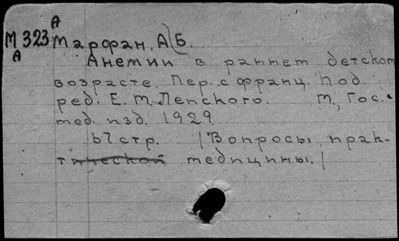 А
М 323 Марфан, А.Б.
А
Анемии в раннем детском
возрасте. Пер. с франц. под
ред. Е. М. Лепского. М., Гос.
мед. изд. 1929.
67 стр. (Вопросы прак-
тической медицины.)